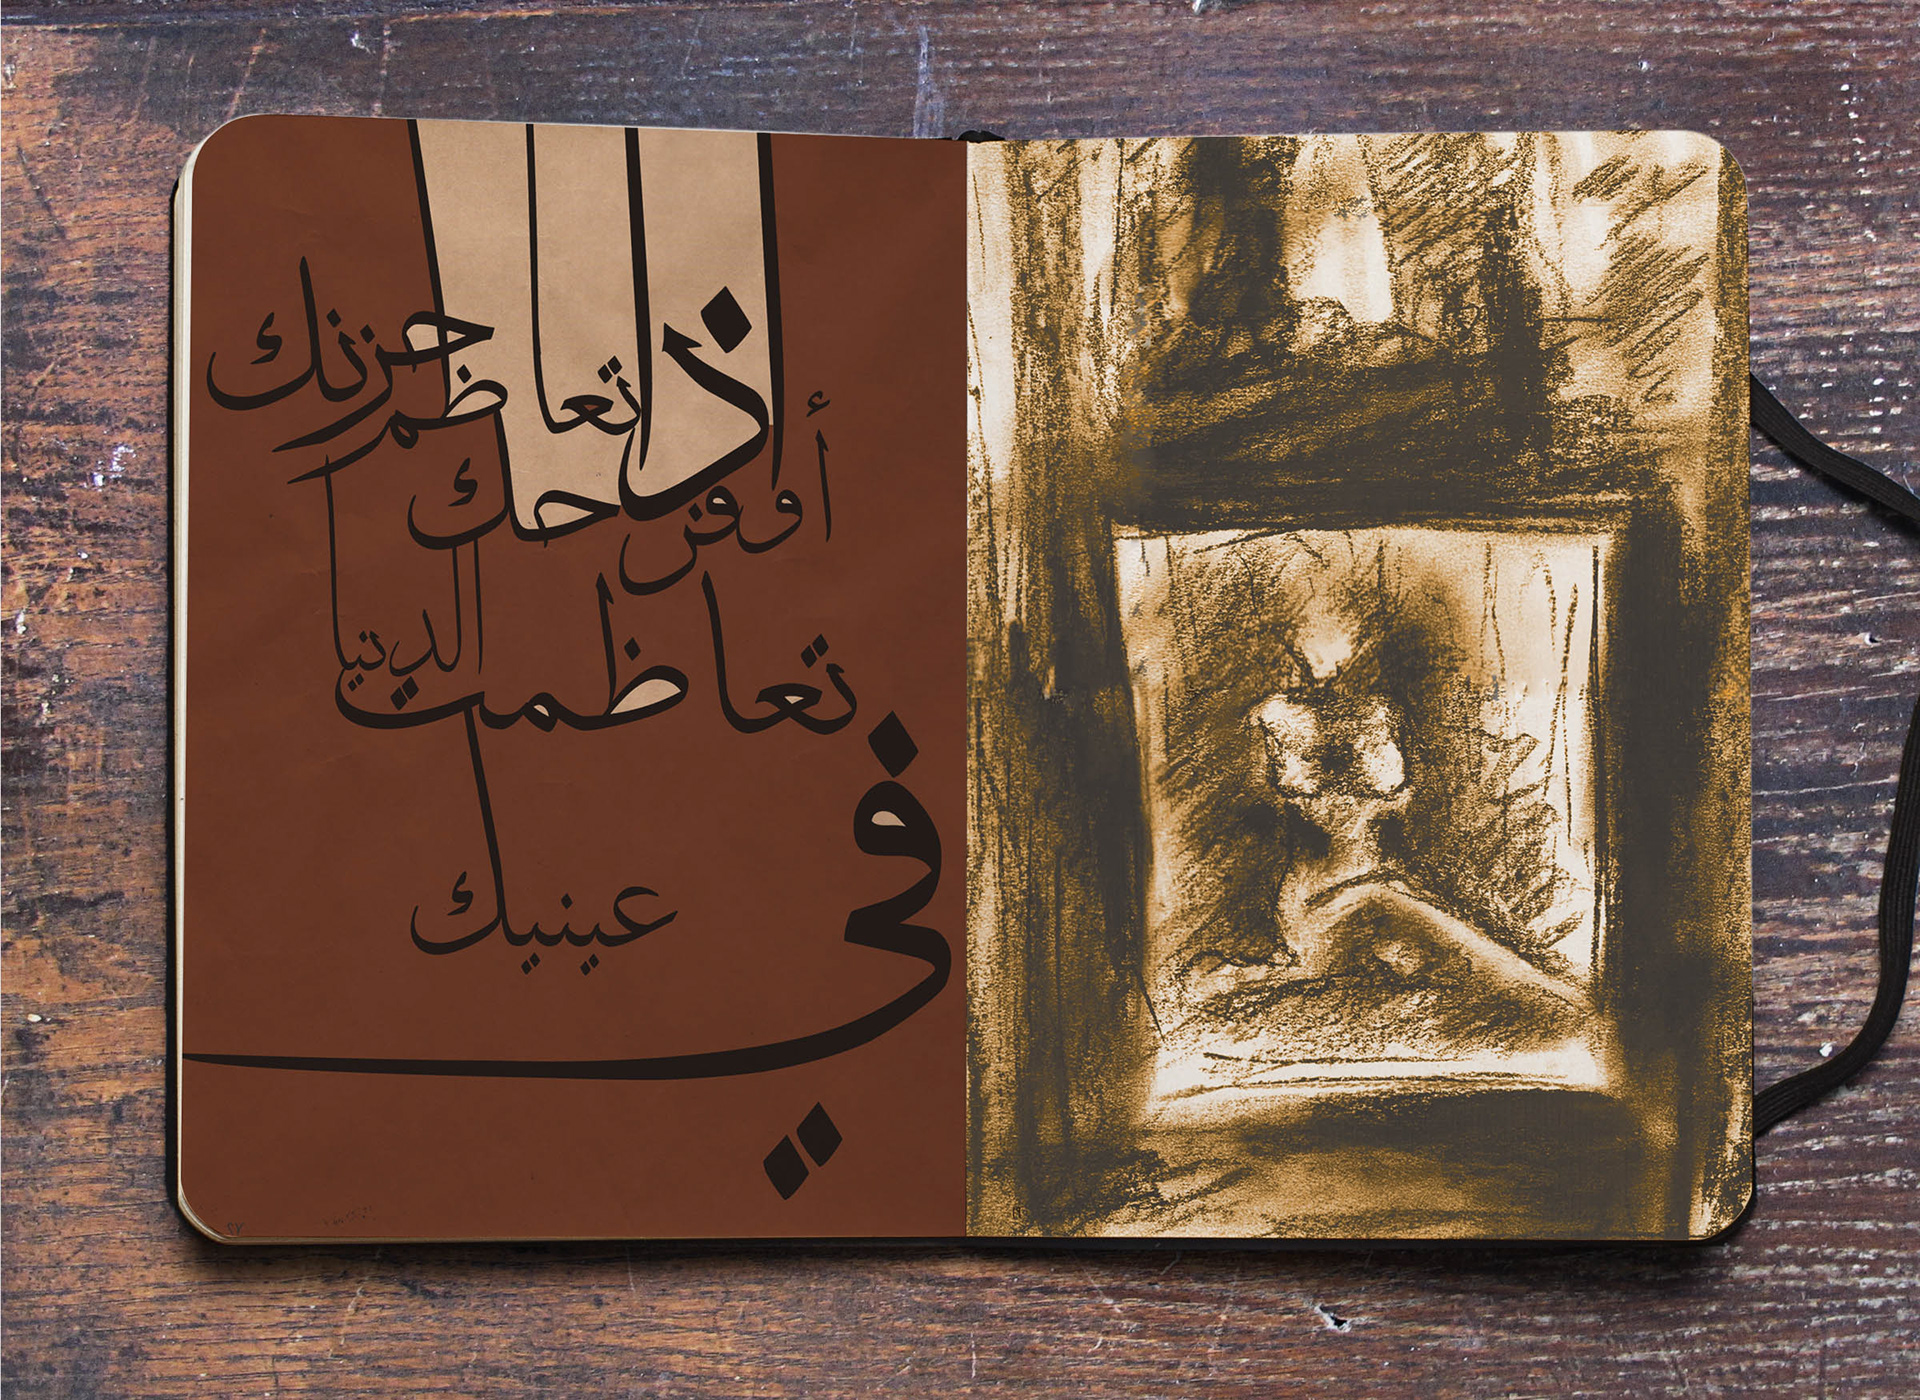 اذا تعاظم حزنك
أو فرحك
تعاظمت الدنيا
في عينيك